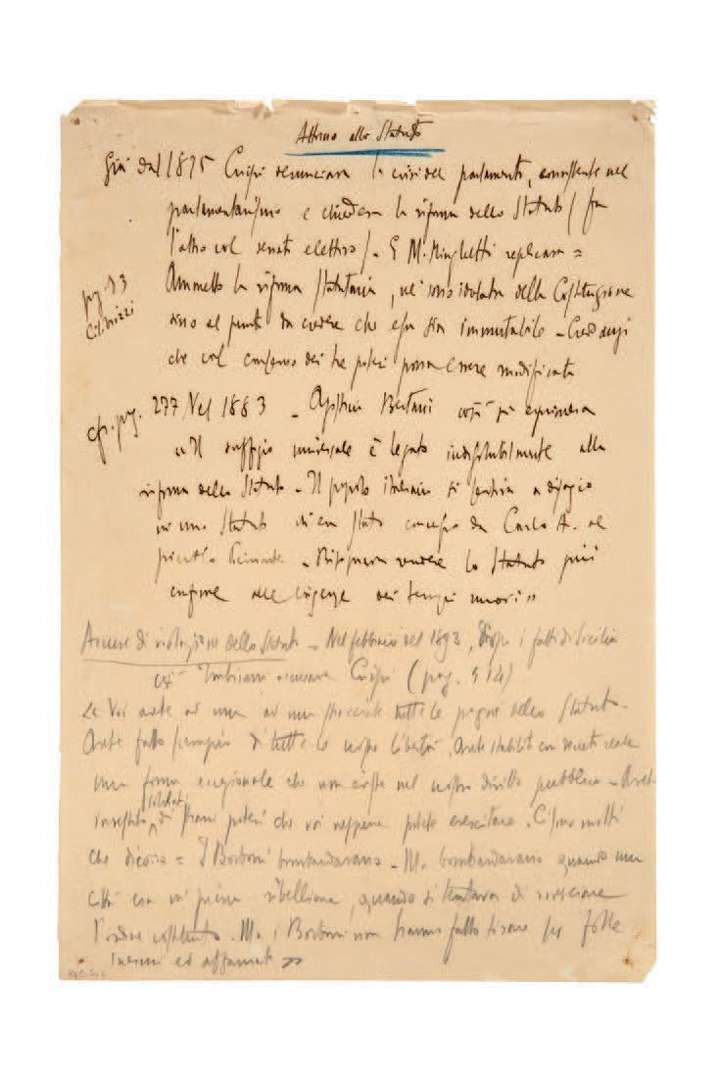 Attorno allo Statuto
Già dal 1875 Crispi denunciava la crisi del parlamento, consistente nel
parlamentarismo e chiedeva la riforma dello Statuto / fra
l'altro col senato elettivo /. E M. Minghetti replicava =
pg. 93
Ammetto la riforma statutaria, né sono idolatra della Costituzione
sino al punto da credere che essa sia immutabile - Credo anzi
che col consenso dei tre poteri possa essere modificata
cfr. pg. 277 Nel 1883 - Agostino Bertani così si esprimeva
"Il suffragio universale è legato indissolubilmente alla
riforma dello Statuto - Il popolo italiano si sentiva a disagio
in uno Statuto concesso da Carlo A. al
piccolo Piemonte - Bisognava rendere lo Statuto più
conforme alle esigenze dei tempi nuovi"
Accuse di violazione dello Statuto - Nel febbraio del 1893, dopo i fatti di Sicilia
così Imbriani accusava Crispi (pag. 514)
Voi avete ad una ad una stracciate tutte le pagine dello Statuto.
Avete fatto scempio di tutte le nostre libertà. Avete stabilito con
una forma eccezionale che non esiste nel nostro diritto pubblico - Avete
investito i soldati di pieni poteri che voi neppure potete esercitare. Ci sono molti
che dicono = I Borboni bombardavano - Ma bombardavano quando una
città era in piena ribellione, quando si tentava di rovesciare
l'ordine costituito. Ma i Borboni non hanno fatto tirare su folle
inermi ed affamate »